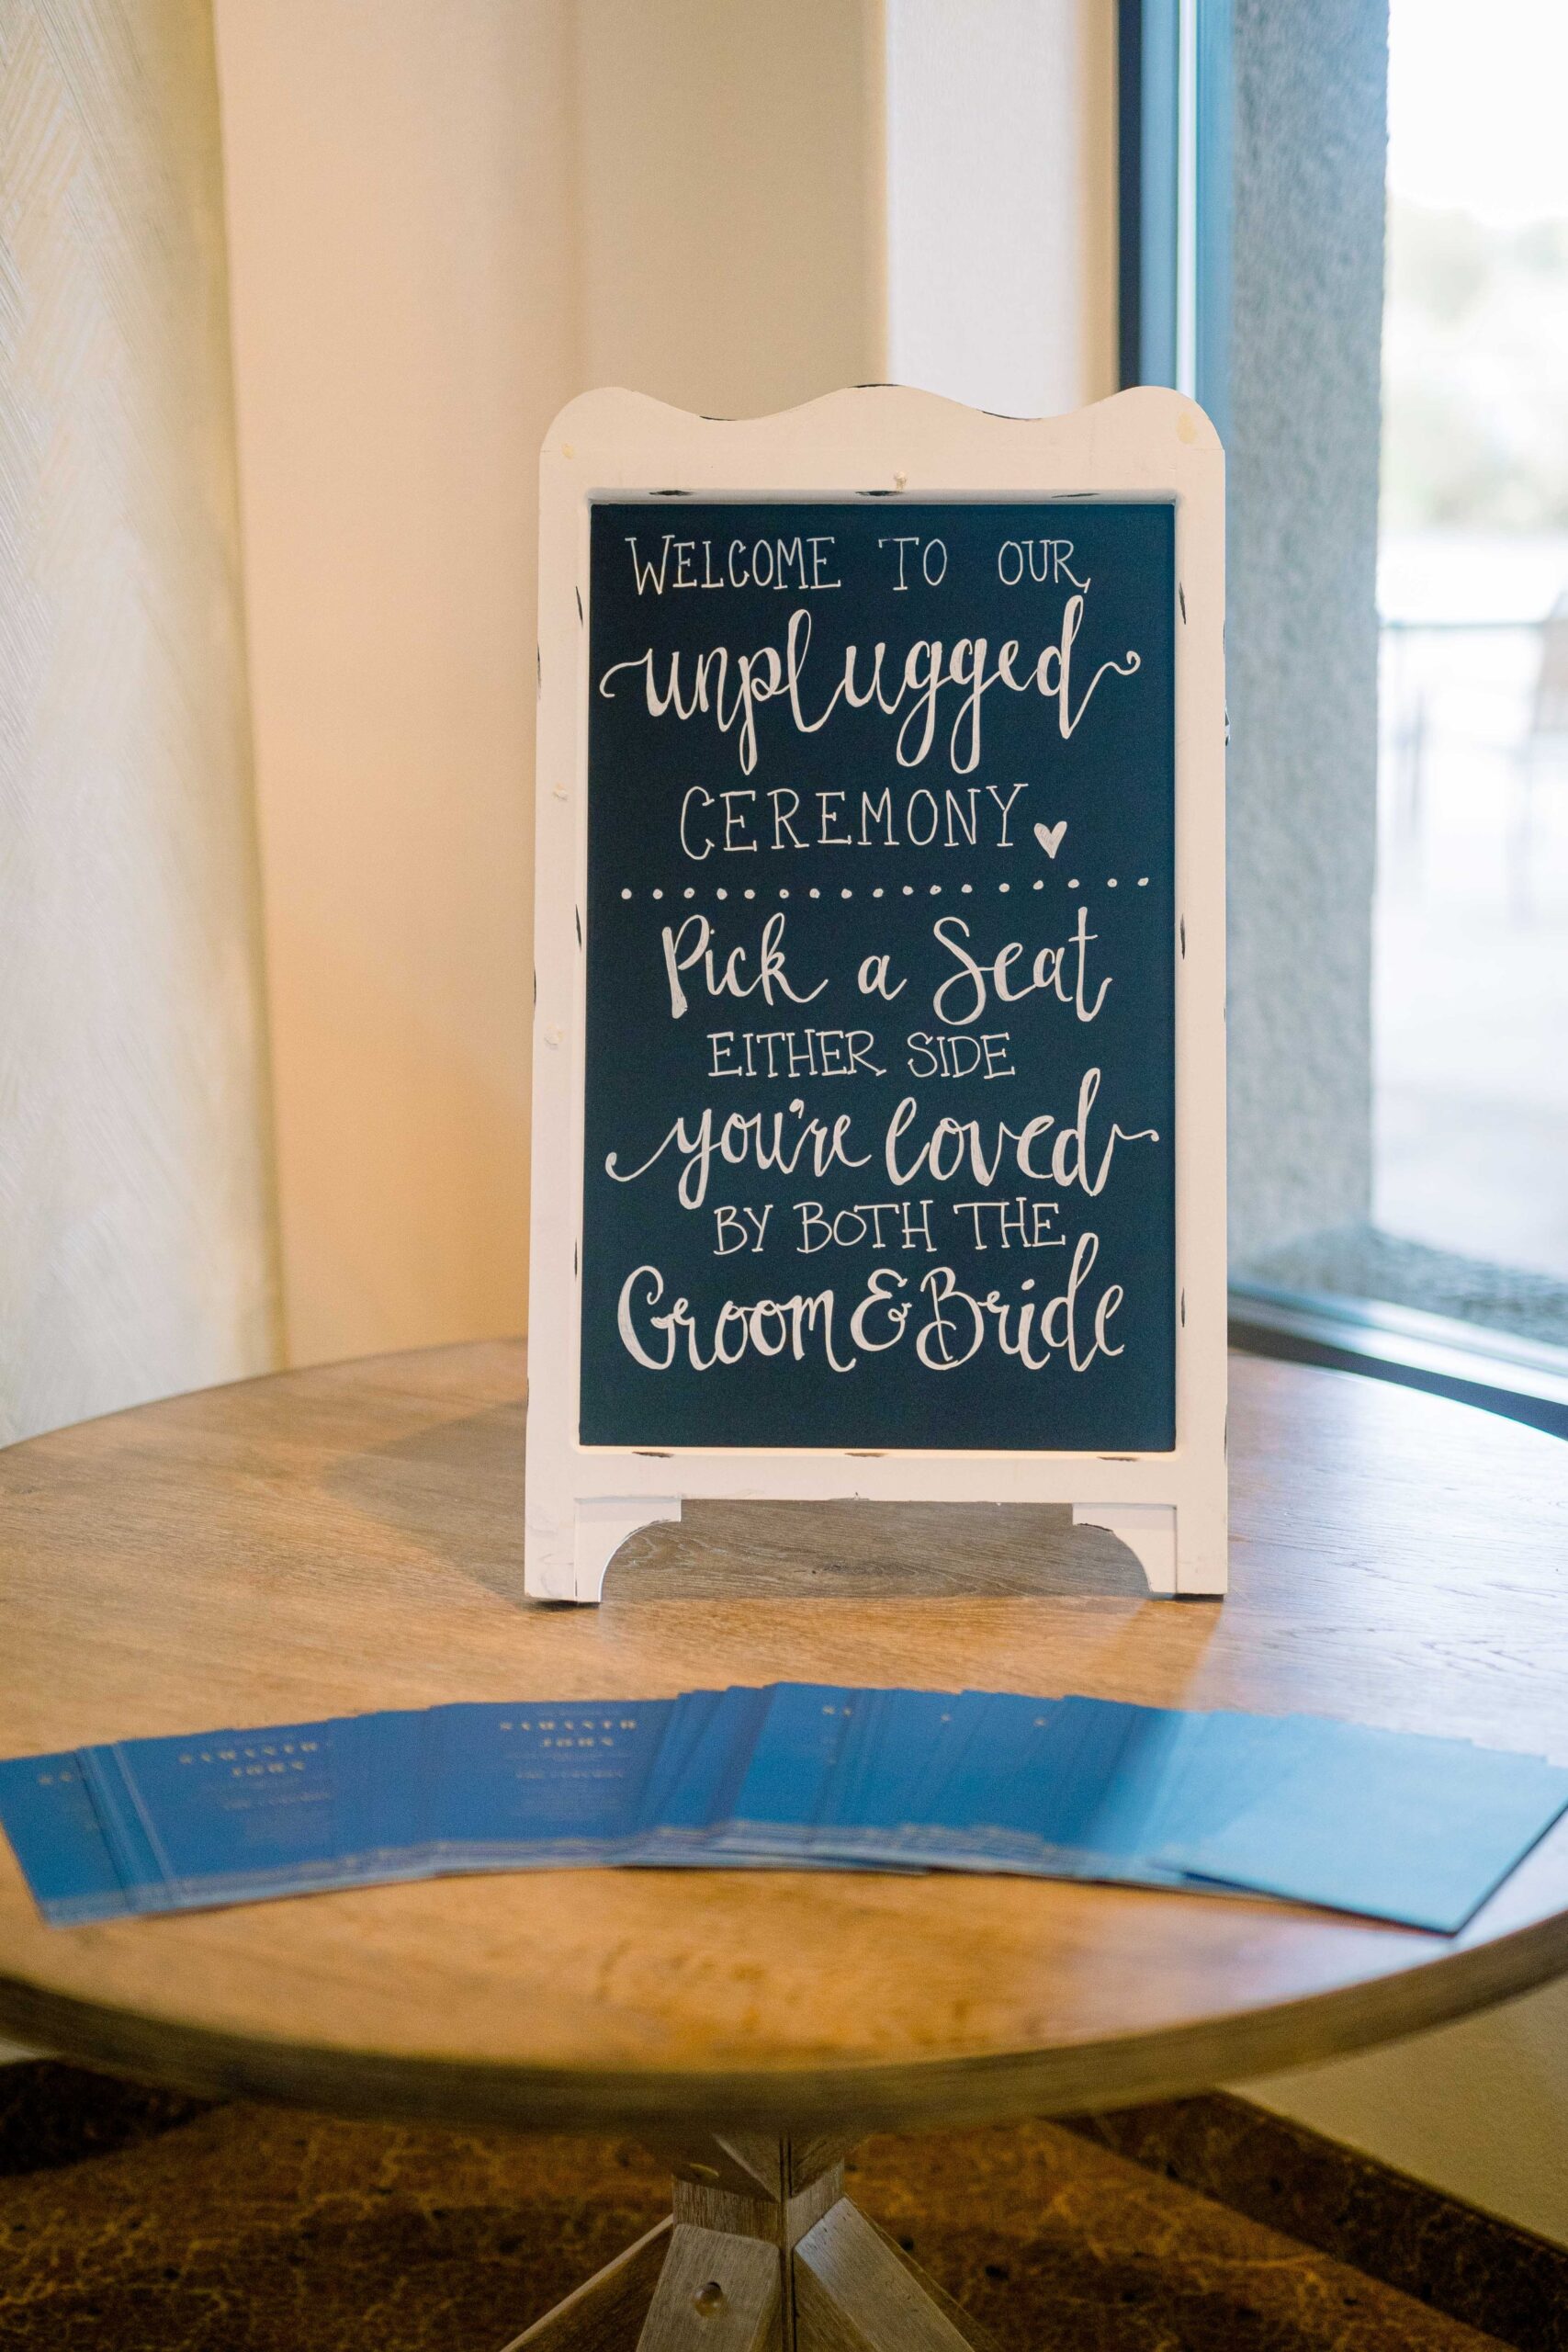 WELCOME TO OUR
unplugged
CEREMONY
Pick a Seat
EITHER SIDE
you're loved
BY BOTH THE
Groom & Bride
SAMANTH
JOHN
SAMANTH
JOHN